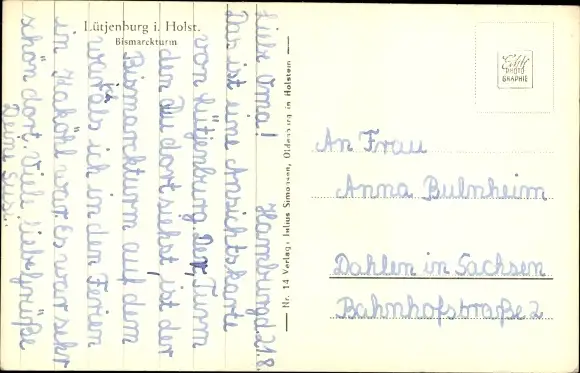 Lütjenburg i. Holst.
Bismarckturm
Hamburg d. 21.8.
Liebe Oma!
Das ist eine Ansichtskarte
von Lütjenburg. Der Turm
den Du dort siehst, ist der
Bismarckturm auf dem
weil ich in den Ferien
in Kaköhl war. Es war sehr
schön dort. Viele liebe Grüße
Deine Susi.
Nr. 14 Verlag: Julius Simonsen, Oldenburg in Holstein
Echte
PHOTO
GRAPHIE
An Frau
Anna Bulnheim
Dahlen in Sachsen
Bahnhofstraße 2